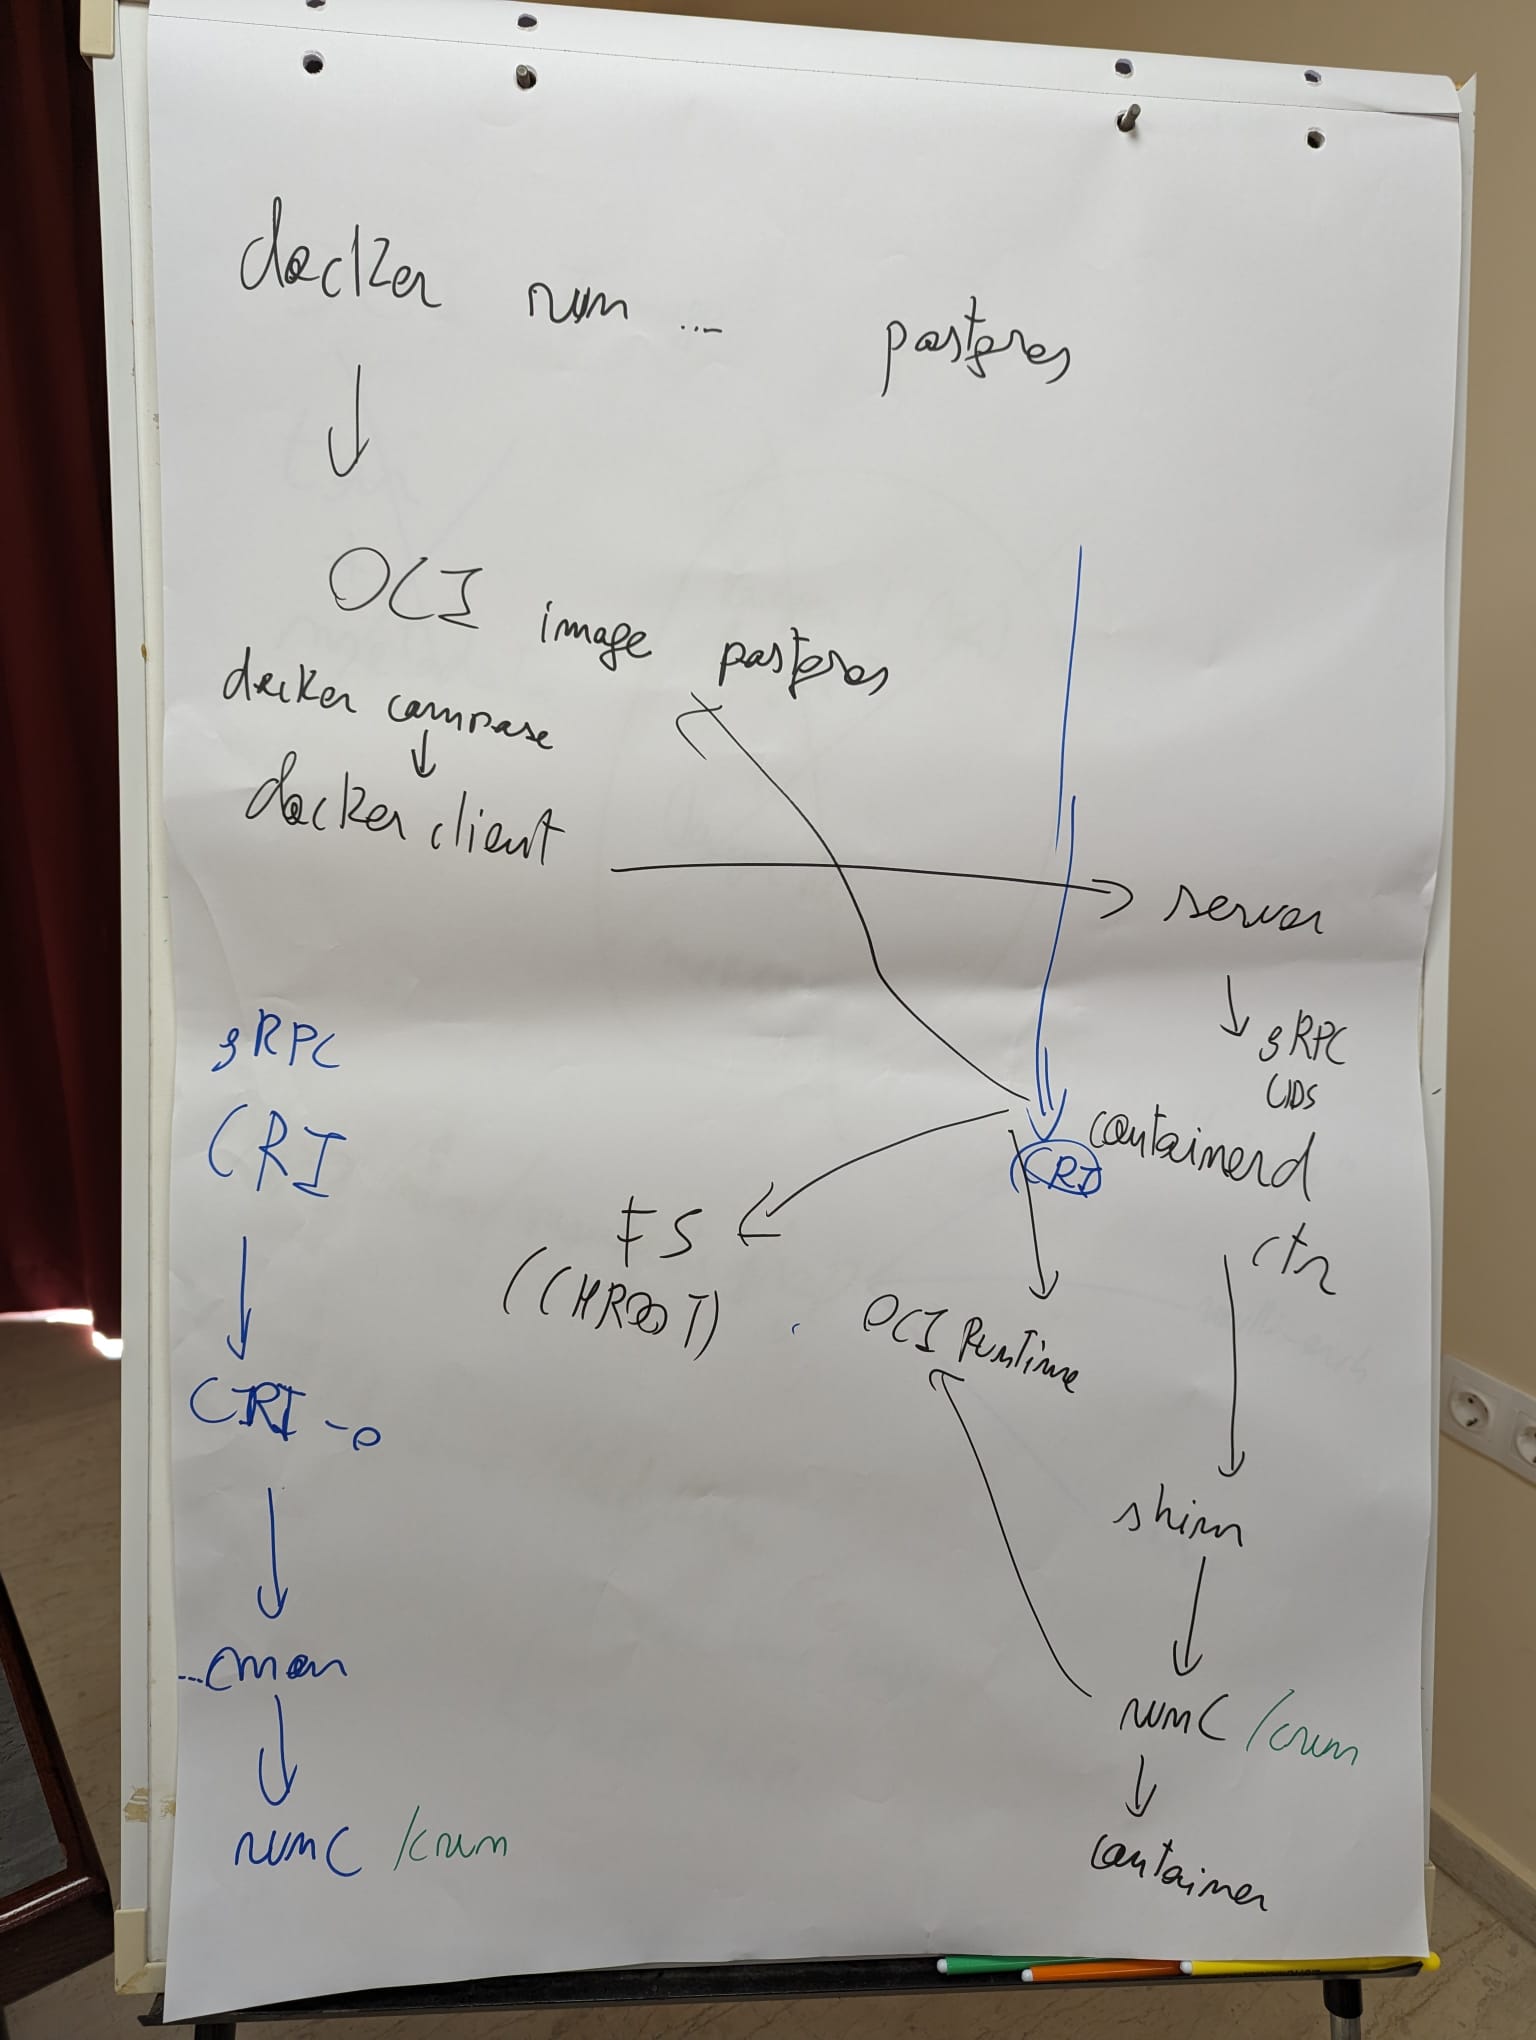 docker run ... postgres
OCI image postgres
docker compose
docker client
server
gRPC
UDS
containerd
CRI
ctr
FS
(CHROOT)
OCI Runtime
shim
runC /crun
container
gRPC
CRI
CRI-o
...cmon
runC /crun